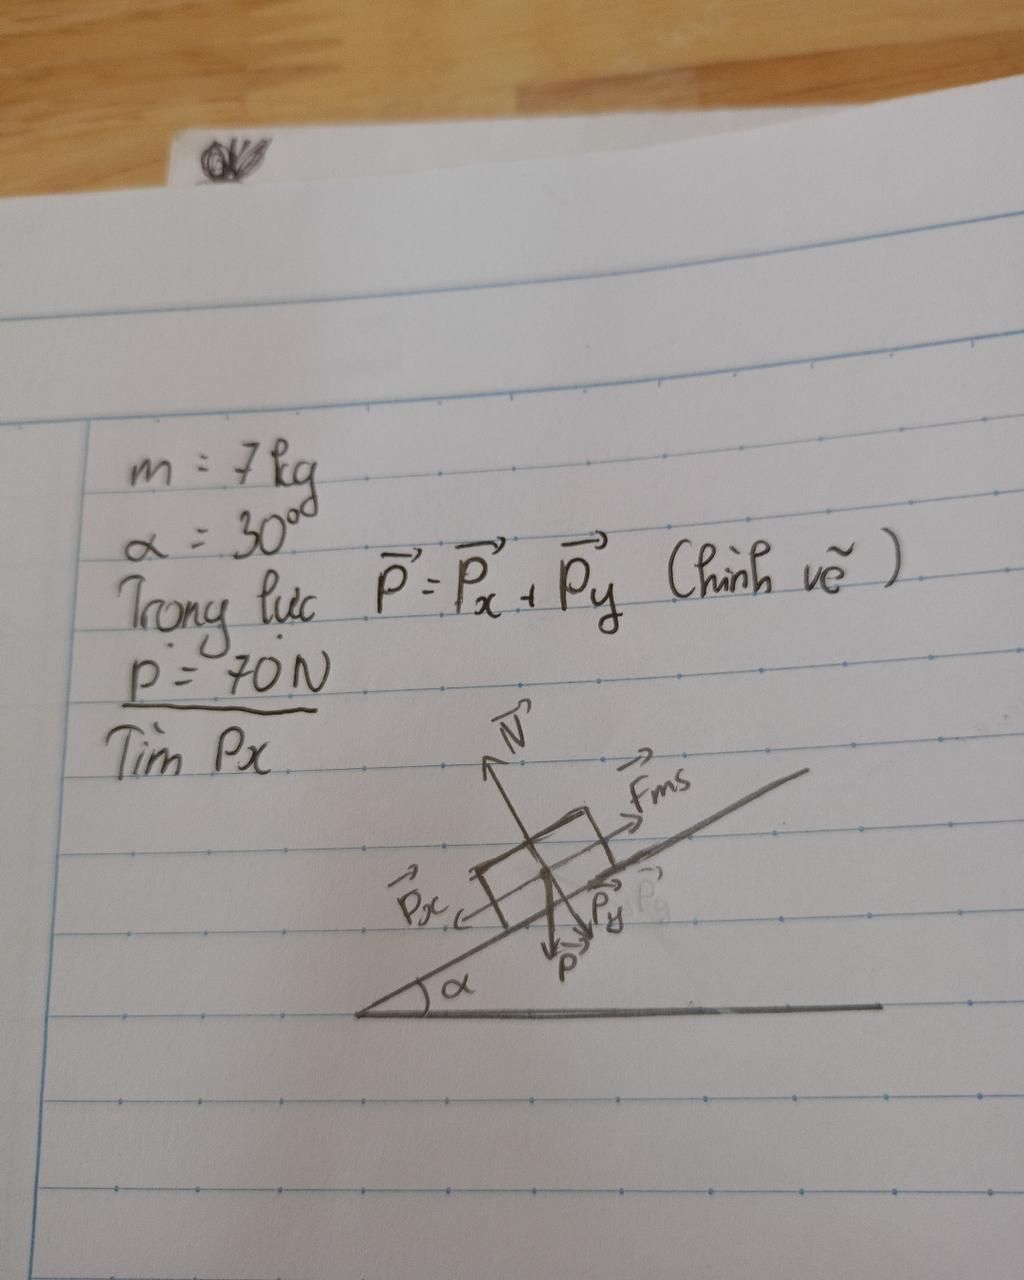 m = 7kg
α = 30°
Trọng lực P⃗ = P⃗x + P⃗y (hình vẽ)
P = 70N
Tìm Px
N⃗
F⃗ms
P⃗x
P⃗y
P⃗y
P⃗
α